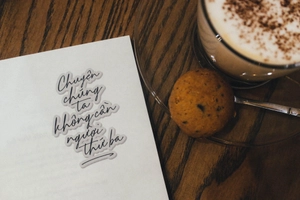 Chuyện
chúng
ta
không cần
người
thứ ba